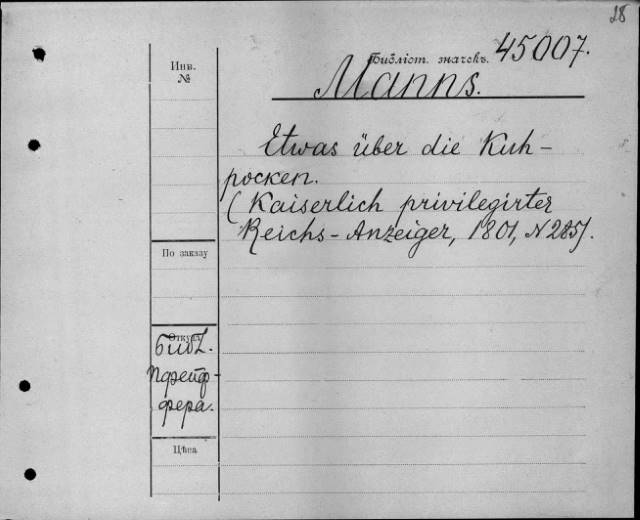 28
Инв.
№
Библіот. значекъ. 45007.
Manns.
Etwas über die Kuh-
pocken.
(Kaiserlich privilegirter
Reichs-Anzeiger, 1801, N 285).
По заказу
Откуда
Библ.
Пфейф-
фера.
Цѣна